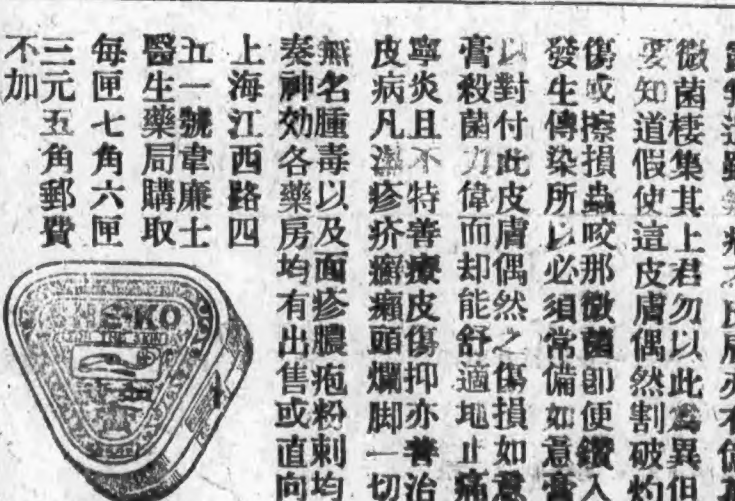 病 皮膚亦有
微菌棲集其上君勿以此為異但
要知道假使這皮膚偶然割破灼
傷或擦損蟲咬那微菌即便鑽入
發生傳染所以必須常備如意膏
以對付此皮膚偶然之傷損如意
膏殺菌力偉而却能舒適地止痛
寧炎且不特善療皮傷抑亦善治
皮病凡濕疹疥癬癩頭爛脚一切
無名腫毒以及面疹膿疱粉刺均
奏神効各藥房均有出售或直向
上海江西路四
五一號韋廉士
醫生藥局購取
每匣七角六匣
三元五角郵費
不加
KO